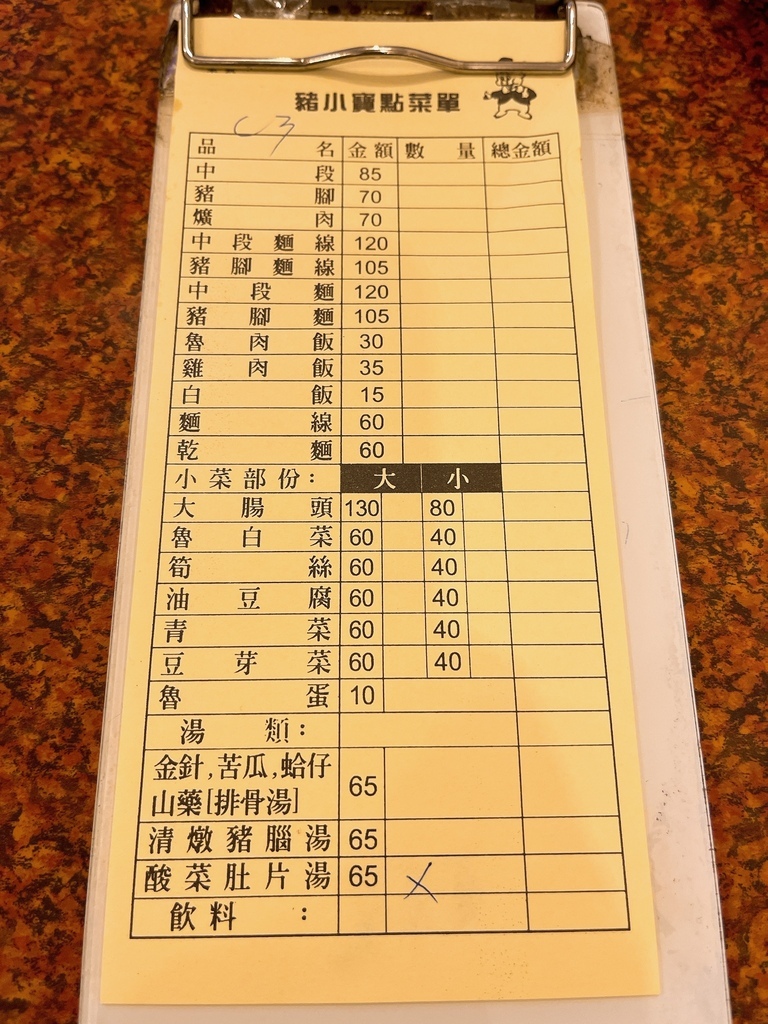 豬小寶點菜單
C3
品名 金額 數量 總金額
中段 85
豬腳 70
爌肉 70
中段麵線 120
豬腳麵線 105
中段麵 120
豬腳麵 105
魯肉飯 30
雞肉飯 35
白飯 15
麵線 60
乾麵 60
小菜部份： 大 小
大腸頭 130 80
魯白菜 60 40
筍絲 60 40
油豆腐 60 40
青菜 60 40
豆芽菜 60 40
魯蛋 10
湯類：
金針,苦瓜,蛤仔
山藥[排骨湯] 65
清燉豬腦湯 65
酸菜肚片湯 65 X
飲料：